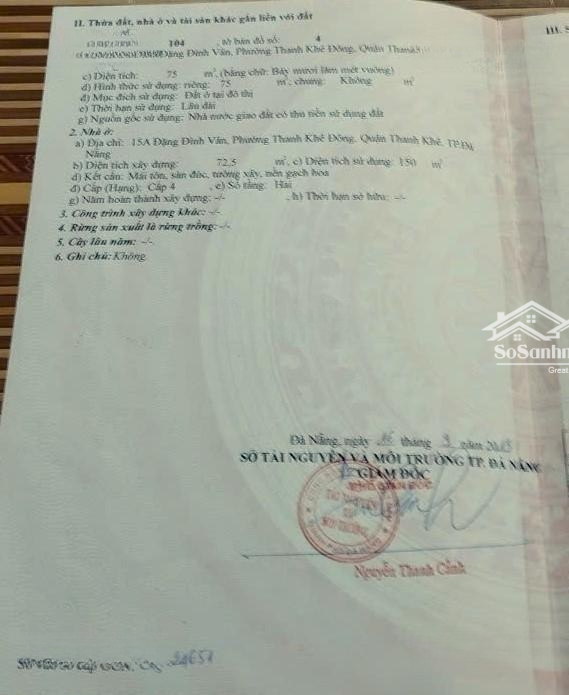 II. Thửa đất, nhà ở và tài sản khác gắn liền với đất
104 tờ bản đồ số: 4
Đặng Đình Vân, Phường Thanh Khê Đông, Quận Thanh
c) Diện tích: 75 m², (bằng chữ: Bảy mươi lăm mét vuông)
d) Hình thức sử dụng: riêng: 75 m², chung: Không m²
đ) Mục đích sử dụng: Đất ở tại đô thị
e) Thời hạn sử dụng: Lâu dài
g) Nguồn gốc sử dụng: Nhà nước giao đất có thu tiền sử dụng đất
2. Nhà ở:
a) Địa chỉ: 15A Đặng Đình Vân, Phường Thanh Khê Đông, Quận Thanh Khê, TP.Đà
Nẵng
b) Diện tích xây dựng: 72,5 m², c) Diện tích sử dụng: 150 m²
d) Kết cấu: Mái tôn, sàn đúc, tường xây, nền gạch hoa
đ) Cấp (Hạng): Cấp 4 , e) Số tầng: Hai
g) Năm hoàn thành xây dựng: -/- , h) Thời hạn sở hữu: -/-
3. Công trình xây dựng khác: -/-
4. Rừng sản xuất là rừng trồng: -/-
5. Cây lâu năm: -/-
6. Ghi chú: Không
III. S
SoSanhn
Great
Đà Nẵng, ngày 16 tháng 9 năm 2013
SỞ TÀI NGUYÊN VÀ MÔI TRƯỜNG TP. ĐÀ NẴNG
GIÁM ĐỐC
PHÓ GIÁM ĐỐC
TÀI NGUYÊN
VÀ
MÔI TRƯỜNG
Nguyễn Thanh Cảnh
24651